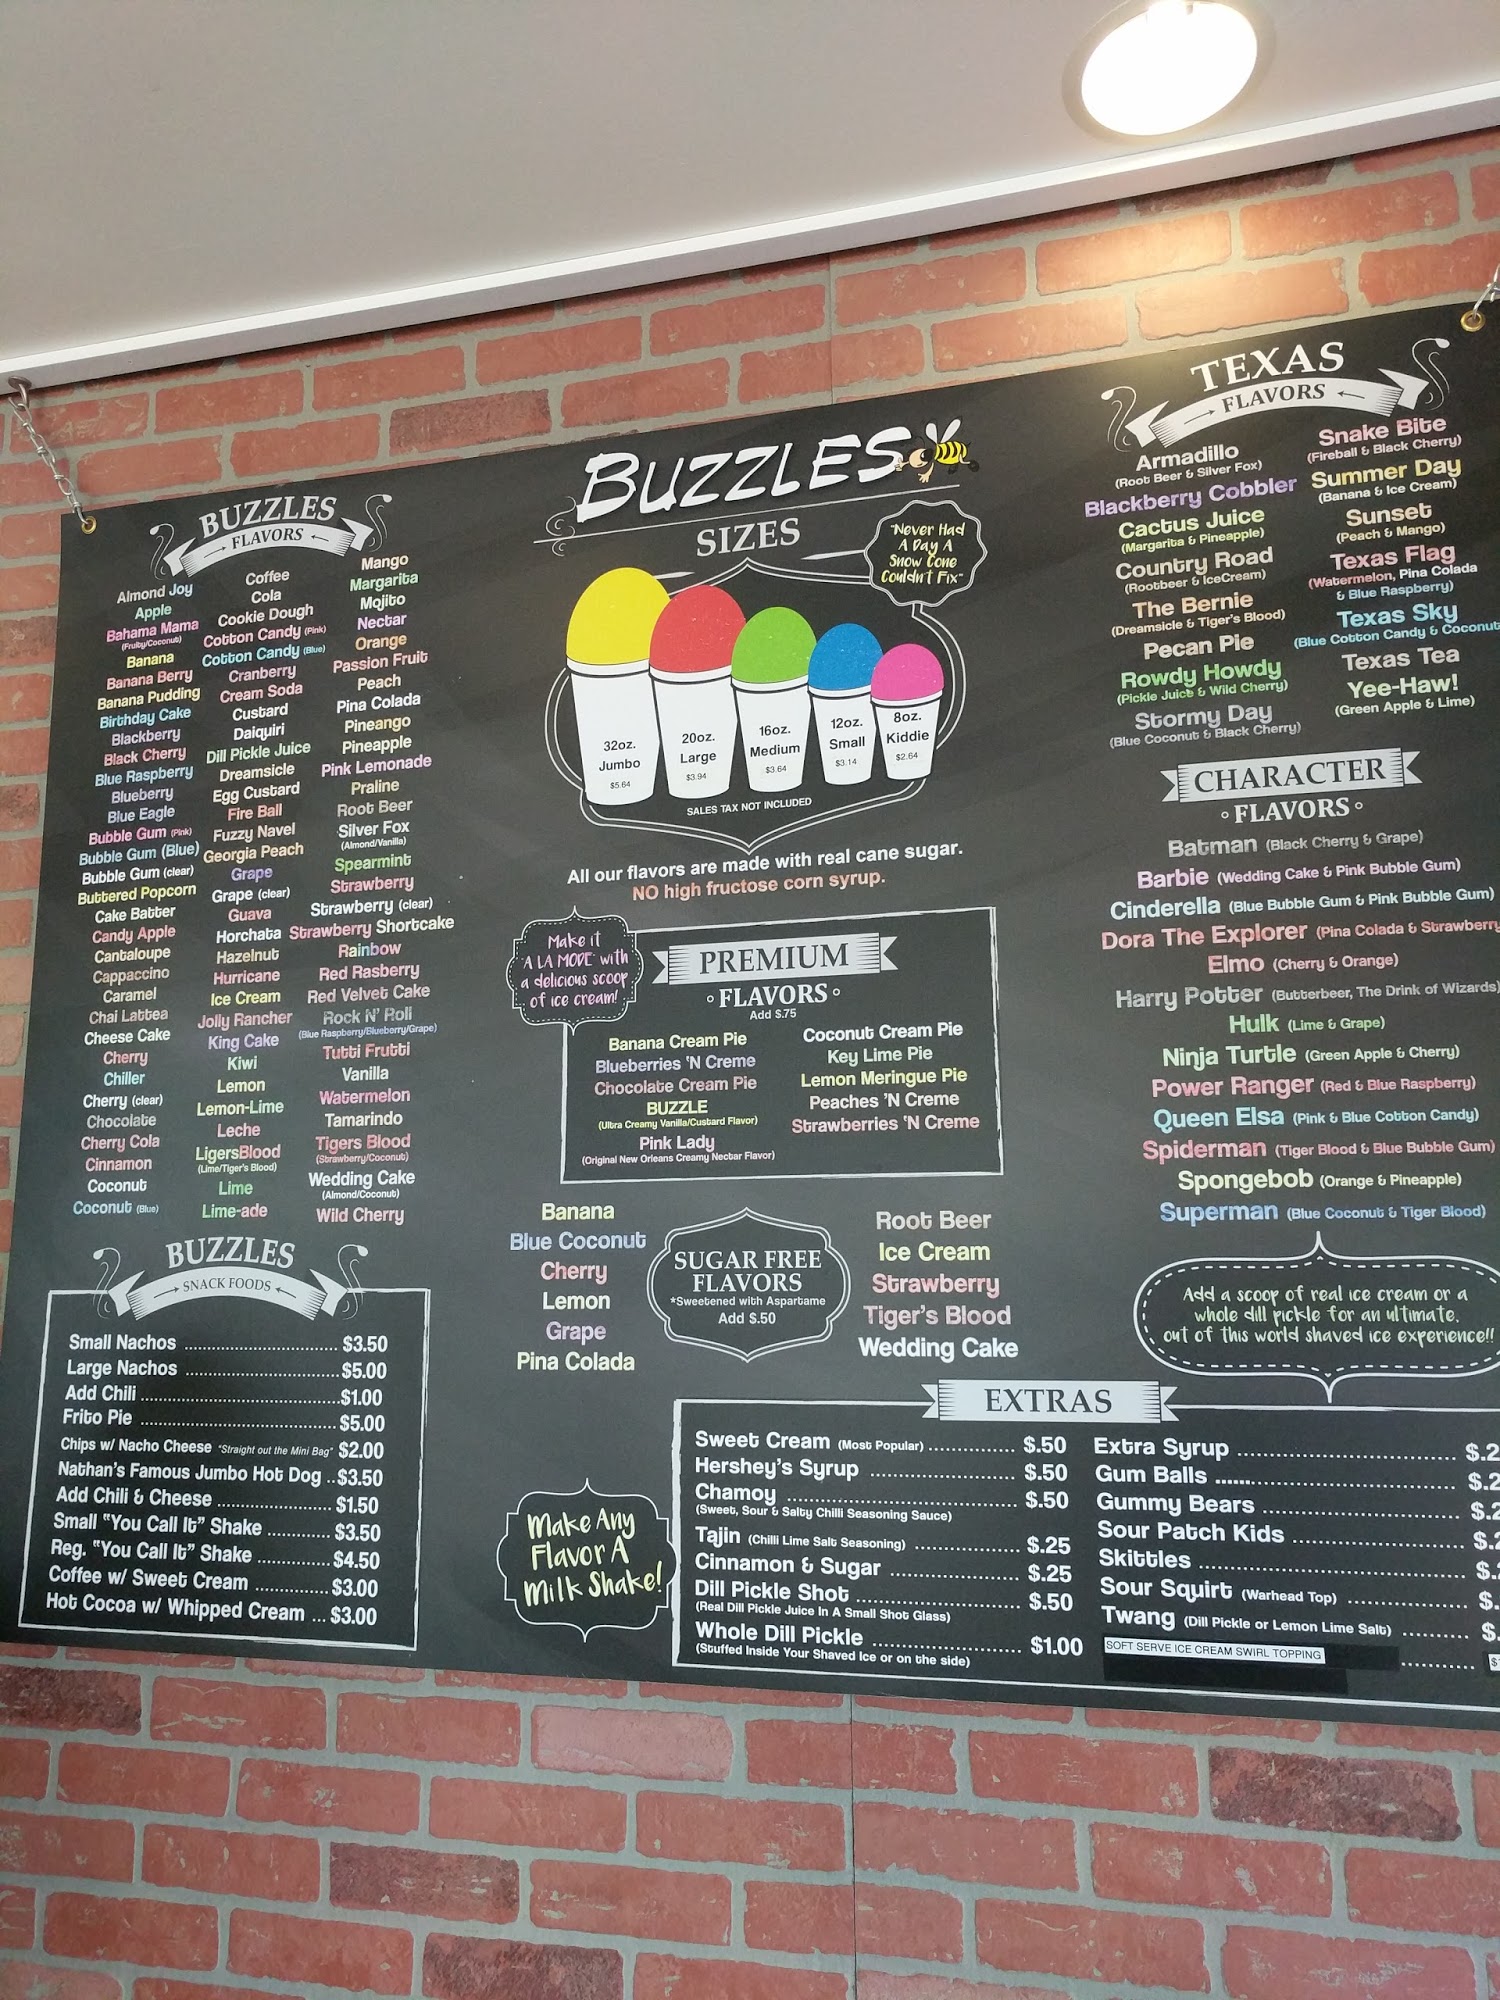 BUZZLES
FLAVORS
Almond Joy
Apple
Bahama Mama
(Fruity/Coconut)
Banana
Banana Berry
Banana Pudding
Birthday Cake
Blackberry
Black Cherry
Blue Raspberry
Blueberry
Blue Eagle
Bubble Gum (Pink)
Bubble Gum (Blue)
Bubble Gum (clear)
Buttered Popcorn
Cake Batter
Candy Apple
Cantaloupe
Cappaccino
Caramel
Chai Lattea
Cheese Cake
Cherry
Chiller
Cherry (clear)
Chocolate
Cherry Cola
Cinnamon
Coconut
Coconut (Blue)
Coffee
Cola
Cookie Dough
Cotton Candy (Pink)
Cotton Candy (Blue)
Cranberry
Cream Soda
Custard
Daiquiri
Dill Pickle Juice
Dreamsicle
Egg Custard
Fire Ball
Fuzzy Navel
Georgia Peach
Grape
Grape (clear)
Guava
Horchata
Hazelnut
Hurricane
Ice Cream
Jolly Rancher
King Cake
Kiwi
Lemon
Lemon-Lime
Leche
LigersBlood
(Lime/Tiger's Blood)
Lime
Lime-ade
Mango
Margarita
Mojito
Nectar
Orange
Passion Fruit
Peach
Pina Colada
Pineango
Pineapple
Pink Lemonade
Praline
Root Beer
Silver Fox
(Almond/Vanilla)
Spearmint
Strawberry
Strawberry (clear)
Strawberry Shortcake
Rainbow
Red Rasberry
Red Velvet Cake
Rock N' Roll
(Blue Raspberry/Blueberry/Grape)
Tutti Frutti
Vanilla
Watermelon
Tamarindo
Tigers Blood
(Strawberry/Coconut)
Wedding Cake
(Almond/Coconut)
Wild Cherry
BUZZLES
SNACK FOODS
Small Nachos ........ $3.50
Large Nachos ........ $5.00
Add Chili ........ $1.00
Frito Pie ........ $5.00
Chips w/ Nacho Cheese "Straight out the Mini Bag" $2.00
Nathan's Famous Jumbo Hot Dog ..$3.50
Add Chili & Cheese ........ $1.50
Small "You Call It" Shake ........ $3.50
Reg. "You Call It" Shake ........ $4.50
Coffee w/ Sweet Cream ........ $3.00
Hot Cocoa w/ Whipped Cream ... $3.00
BUZZLES
SIZES
"Never Had
A Day A
Snow Cone
Couldn't Fix"
32oz.
Jumbo
$5.64
20oz.
Large
$3.94
16oz.
Medium
$3.64
12oz.
Small
$3.14
8oz.
Kiddie
$2.64
SALES TAX NOT INCLUDED
All our flavors are made with real cane sugar.
NO high fructose corn syrup.
Make it
"A LA MODE" with
a delicious scoop
of ice cream!
PREMIUM
FLAVORS
Add $.75
Banana Cream Pie
Blueberries 'N Creme
Chocolate Cream Pie
BUZZLE
(Ultra Creamy Vanilla/Custard Flavor)
Pink Lady
(Original New Orleans Creamy Nectar Flavor)
Coconut Cream Pie
Key Lime Pie
Lemon Meringue Pie
Peaches 'N Creme
Strawberries 'N Creme
Banana
Blue Coconut
Cherry
Lemon
Grape
Pina Colada
SUGAR FREE
FLAVORS
*Sweetened with Aspartame
Add $.50
Root Beer
Ice Cream
Strawberry
Tiger's Blood
Wedding Cake
Make Any
Flavor A
Milk Shake!
TEXAS
FLAVORS
Armadillo
(Root Beer & Silver Fox)
Blackberry Cobbler
Cactus Juice
(Margarita & Pineapple)
Country Road
(Rootbeer & IceCream)
The Bernie
(Dreamsicle & Tiger's Blood)
Pecan Pie
Rowdy Howdy
(Pickle Juice & Wild Cherry)
Stormy Day
(Blue Coconut & Black Cherry)
Snake Bite
(Fireball & Black Cherry)
Summer Day
(Banana & Ice Cream)
Sunset
(Peach & Mango)
Texas Flag
(Watermelon, Pina Colada
& Blue Raspberry)
Texas Sky
(Blue Cotton Candy & Coconut
Texas Tea
Yee-Haw!
(Green Apple & Lime)
CHARACTER
FLAVORS
Batman (Black Cherry & Grape)
Barbie (Wedding Cake & Pink Bubble Gum)
Cinderella (Blue Bubble Gum & Pink Bubble Gum)
Dora The Explorer (Pina Colada & Strawberry
Elmo (Cherry & Orange)
Harry Potter (Butterbeer, The Drink of Wizards)
Hulk (Lime & Grape)
Ninja Turtle (Green Apple & Cherry)
Power Ranger (Red & Blue Raspberry)
Queen Elsa (Pink & Blue Cotton Candy)
Spiderman (Tiger Blood & Blue Bubble Gum)
Spongebob (Orange & Pineapple)
Superman (Blue Coconut & Tiger Blood)
Add a scoop of real ice cream or a
whole dill pickle for an ultimate,
out of this world shaved ice experience!!
EXTRAS
Sweet Cream (Most Popular) ........ $.50
Hershey's Syrup ........ $.50
Chamoy ........ $.50
(Sweet, Sour & Salty Chilli Seasoning Sauce)
Tajin (Chilli Lime Salt Seasoning) ........ $.25
Cinnamon & Sugar ........ $.25
Dill Pickle Shot ........ $.50
(Real Dill Pickle Juice In A Small Shot Glass)
Whole Dill Pickle ........ $1.00
(Stuffed Inside Your Shaved Ice or on the side)
Extra Syrup ........ $.2
Gum Balls ........ $.2
Gummy Bears ........ $.2
Sour Patch Kids ........ $.2
Skittles ........ $.2
Sour Squirt (Warhead Top) ........ $.
Twang (Dill Pickle or Lemon Lime Salt) ........ $.
SOFT SERVE ICE CREAM SWIRL TOPPING ........ $